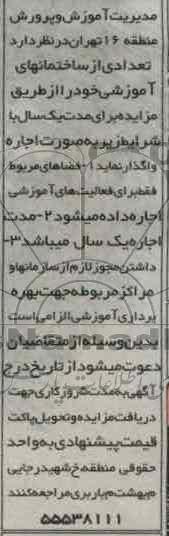 مدیریت آموزش و پرورش
منطقه ۱۶ تهران در نظر دارد
تعدادی از ساختمانهای
آموزشی خود را از طریق
مزایده برای مدت یک سال با
شرایط زیر به صورت اجاره
واگذار نماید ۱- فضاهای مربوط
فقط برای فعالیت های آموزشی
اجاره داده میشود ۲- مدت
اجاره یک سال میباشد ۳-
داشتن مجوز لازم از سازمانها و
مراکز مربوطه جهت بهره
برداری آموزشی الزامی است
بدین وسیله از متقاضیان
دعوت میشود از تاریخ درج
آگهی به مدت روز کاری جهت
دریافت مزایده و تحویل پاکت
قیمت پیشنهادی به واحد
حقوقی منطقه خ شهید رجایی
م بهشت م باربری مراجعه کنند
۵۵۵۳۸۱۱۱